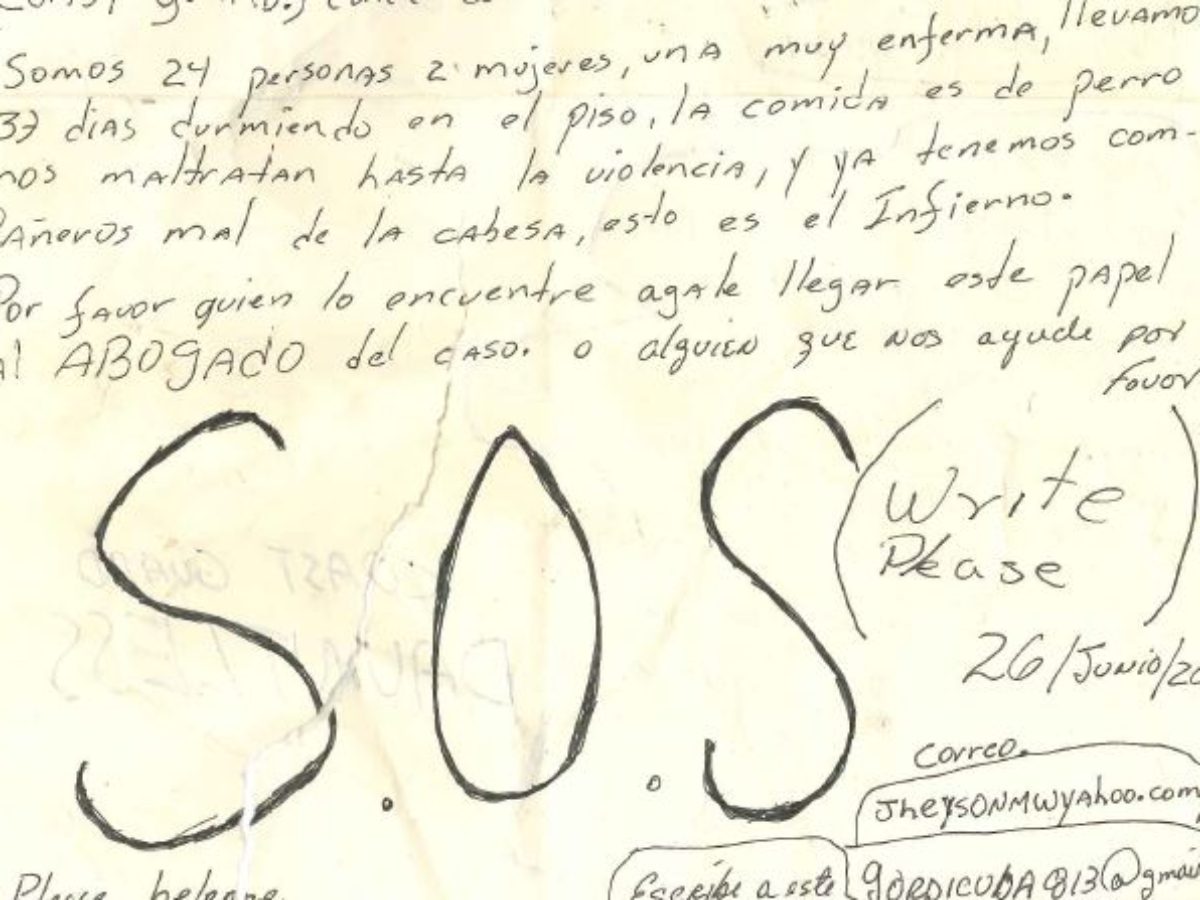 Somos 24 personas 2 mujeres, una muy enferma, llevamo
37 dias durmiendo en el piso, la comida es de perro
nos maltratan hasta la violencia, y ya tenemos com-
pañeros mal de la cabesa, esto es el Infierno.
Por favor quien lo encuentre agale llegar este papel
al ABOGADO del caso. o alguien que nos ayude por
favor
S.O.S
(Write
Please)
26/Junio/20
Correo.
JheysonMwyahoo.com
Please
Escribe a este gordicuba813@gmai
COAST GUARD
DAUNTLESS